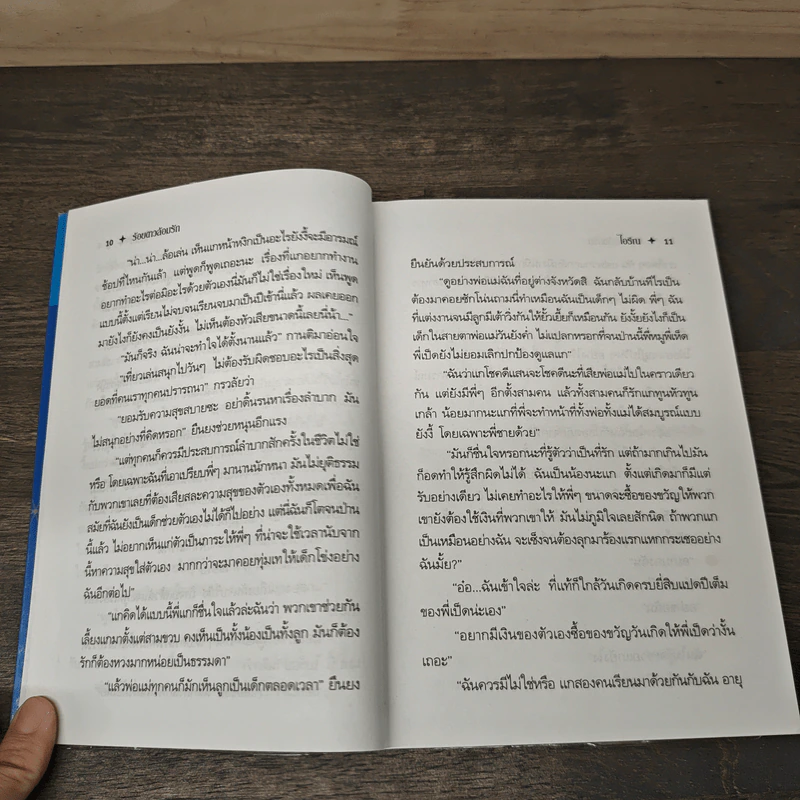 10 ✦ ร้อยดาวล้อมรัก
"น่า...น่า...ล้อเล่น เห็นแกหน้าหงิกเป็นอะไรยังงี้จะมีอารมณ์
ช้อปที่ไหนกันเล้า แต่พูดก็พูดเถอะนะ เรื่องที่แกอยากทำงาน
อยากทำอะไรต่อมิอะไรด้วยตัวเองนี่มันก็ไม่ใช่เรื่องใหม่ เห็นพูด
แบบนี้ตั้งแต่เรียนไม่จบจนเรียนจบมาเป็นปีเข้านี่แล้ว ผลเคยออก
มายังไงก็ยังคงเป็นยังงั้น ไม่เห็นต้องหัวเสียขนาดนี้เลยนี่น้า..."
"มันก็จริง ฉันน่าจะทำใจได้ตั้งนานแล้ว" กานติมาอ่อนใจ
"เที่ยวเล่นสนุกไปวันๆ ไม่ต้องรับผิดชอบอะไรเป็นสิ่งสุด
ยอดที่คนเราทุกคนปรารถนา" กรวลัยว่า
"ยอมรับความสุขสบายซะ อย่าดิ้นรนหาเรื่องลำบาก มัน
ไม่สนุกอย่างที่คิดหรอก" ยืนยงช่วยหนุนอีกแรง
"แต่ทุกคนก็ควรมีประสบการณ์ลำบากสักครั้งในชีวิตไม่ใช่
หรือ โดยเฉพาะฉันที่เอาเปรียบพี่ๆ มานานนักหนา มันไม่ยุติธรรม
กับพวกเขาเลยที่ต้องเสียสละความสุขของตัวเองทั้งหมดเพื่อฉัน
สมัยที่ฉันยังเป็นเด็กช่วยตัวเองไม่ได้ก็ไปอย่าง แต่นี่ฉันก็โตจนป่าน
นี้แล้ว ไม่อยากเห็นแก่ตัวเป็นภาระให้พี่ๆ ที่น่าจะใช้เวลานับจาก
นี้หาความสุขใส่ตัวเอง มากกว่าจะมาคอยทุ่มเทให้เด็กโข่งอย่าง
ฉันอีกต่อไป"
"แกคิดได้แบบนี้พี่แกก็ชื่นใจแล้วล่ะฉันว่า พวกเขาช่วยกัน
เลี้ยงแกมาตั้งแต่สามขวบ คงเห็นเป็นทั้งน้องเป็นทั้งลูก มันก็ต้อง
รักก็ต้องหวงมากหน่อยเป็นธรรมดา"
"แล้วพ่อแม่ทุกคนก็มักเห็นลูกเป็นเด็กตลอดเวลา" ยืนยง
โอริณ ✦ 11
ยืนยันด้วยประสบการณ์
"ดูอย่างพ่อแม่ฉันที่อยู่ต่างจังหวัดสิ ฉันกลับบ้านทีไรเป็น
ต้องมาคอยซักโน่นถามนี่ทำเหมือนฉันเป็นเด็กๆ ไม่ผิด พี่ๆ ฉัน
ที่แต่งงานจนมีลูกมีเต้าวิ่งกันให้ยั้วเยี้ยก็เหมือนกัน ยังงั้ยยังไงก็เป็น
เด็กในสายตาพ่อแม่วันยังค่ำ ไม่แปลกหรอกที่จนป่านนี้พี่หมูพี่เห็ด
พี่เป็ดยังไม่ยอมเลิกปกป้องดูแลแก"
"ฉันว่าแกโชคดีแสนจะโชคดีนะที่เสียพ่อแม่ไปในคราวเดียว
กัน แต่ยังมีพี่ๆ อีกตั้งสามคน แล้วทั้งสามคนก็รักแกทูนหัวทูน
เกล้า น้อยมากนะแกที่พี่จะทำหน้าที่ทั้งพ่อทั้งแม่ได้สมบูรณ์แบบ
ยังงี้ โดยเฉพาะพี่ชายด้วย"
"มันก็ชื่นใจหรอกนะที่รู้ตัวว่าเป็นที่รัก แต่ถ้ามากเกินไปมัน
ก็อดทำให้รู้สึกผิดไม่ได้ ฉันเป็นน้องนะแก ตั้งแต่เกิดมาก็มีแต่
รับอย่างเดียว ไม่เคยทำอะไรให้พี่ๆ ขนาดจะซื้อของขวัญให้พวก
เขายังต้องใช้เงินที่พวกเขาให้ มันไม่ภูมิใจเลยสักนิด ถ้าพวกแก
เป็นเหมือนอย่างฉัน จะเซ็งจนต้องลุกมาร้องแรกแหกกระเชออย่าง
ฉันมั้ย?"
"อ๋อ...ฉันเข้าใจล่ะ ที่แท้ก็ใกล้วันเกิดครบยี่สิบแปดปีเต็ม
ของพี่เป็ดน่ะเอง"
"อยากมีเงินของตัวเองซื้อของขวัญวันเกิดให้พี่เป็ดว่างั้น
เถอะ"
"ฉันควรมีไม่ใช่หรือ แกสองคนเรียนมาด้วยกันกับฉัน อายุ